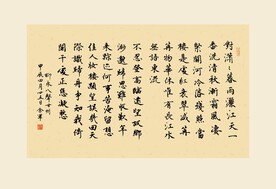 對瀟〻暮雨灑江天一
番洗清秋漸霜風淒
緊關河冷落殘照當
樓是處紅衰翠減苒
苒物華休惟有長江水
無語東流
不忍登高臨遠望故鄉
渺邈歸思難收歎年
來蹤迹何事苦淹留想
佳人妝樓顒望誤幾回天
際識歸舟爭知我倚
闌干處正恁凝愁
柳永八聲甘州
甲辰四月廿五日